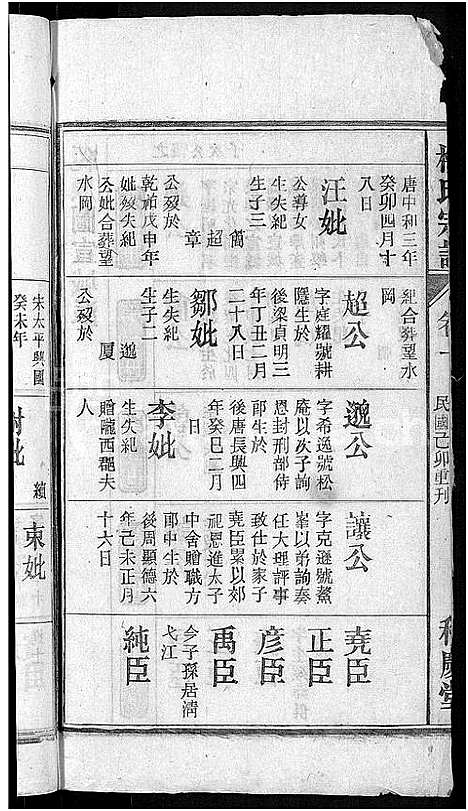 氏宗譜
卷一
民國己卯重刊
唐中和三年
癸卯四月十
八日
汪妣
公導女
生失紀
生子三
簡
超
章
公歿於
乾祐戊申年
妣歿失紀
公妣合葬望
水岡
紀合葬望水
岡
超公
字庭耀號耕
隱生於
後梁貞明三
年丁丑二月
二十八日
鄒妣
生失紀
生子二
邈
厦
公歿於
邈公
字希逸號松
庵以次子詢
恩封刑部侍
郎生於
後唐長興四
年癸巳二月
日
李妣
生失紀
贈隴西郡夫
人
讓公
字克遜號鰲
峯以弟詢奏
任大理評事
致仕於家子
堯臣累以郊
祀恩進太子
中舍贈職方
郎中生於
後周顯德六
年己未正月
十六日
堯臣
正臣
彥臣
禹臣
今子孫居清
弋江
純臣
宋太平興國
癸未年
謝妣
續
東妣